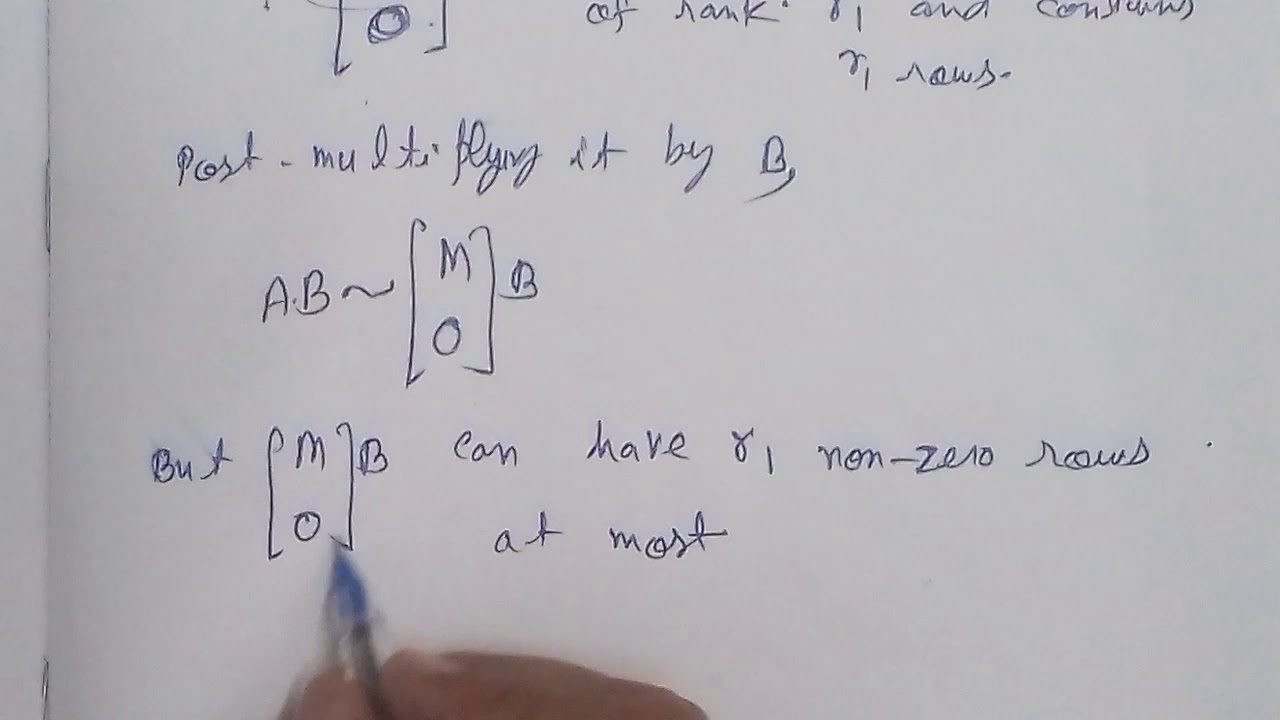 [O.] of rank r₁ and contains
r₁ rows.
Post-multiplying it by B,
A.B ~ [M O] B
But [M O] B can have r₁ non-zero rows
at most